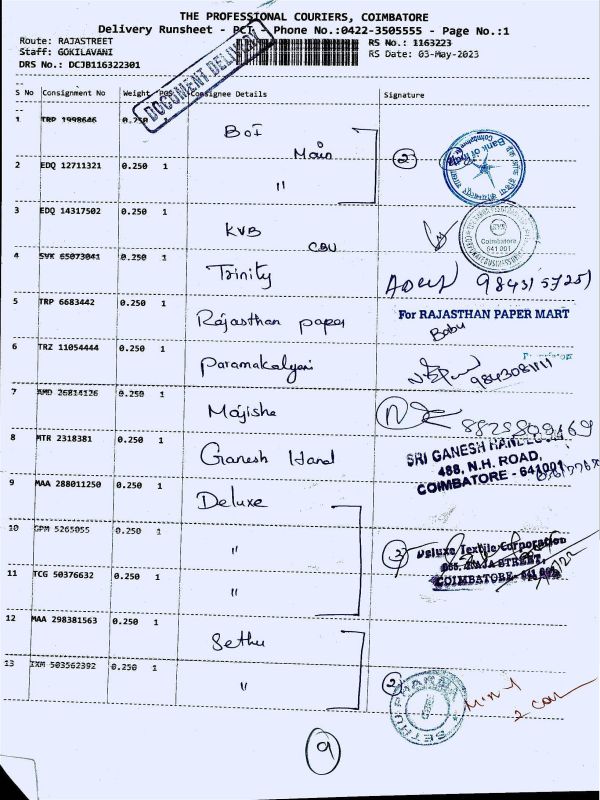 THE PROFESSIONAL COURIERS, COIMBATORE
Delivery Runsheet - PCT - Phone No.:0422-3505555 - Page No.:1
Route: RAJASTREET
RS No.: 1163223
Staff: GOKILAVANI
RS Date: 03-May-2023
DRS No.: DCJB116322301
DOCUMENT DELIVERY
S No Consignment No Weight PCS Consignee Details Signature
1 TRP 1998646 0.250 BOI Main
2 EDQ 12711321 0.250 1 "
2
Bank of India
3 EDQ 14317502 0.250 1 KVB CBU
Coimbatore
641 001
4 SVK 65073041 0.250 1 Trinity
5 TRP 6683442 0.250 1 Rajasthan paper
For RAJASTHAN PAPER MART
Babu
6 TRZ 11054444 0.250 1 Paramakalyani
9843081111
7 AMD 26814126 0.250 1 Majisha
8 MTR 2318381 0.250 1 Ganesh Hand
SRI GANESH
488, N.H. ROAD,
COIMBATORE - 641001
9 MAA 288011250 0.250 1 Deluxe
10 GPM 5265055 0.250 1 "
3
Deluxe Textile Corporation
RAJA STREET,
COIMBATORE - 641 001
11 TCG 50376632 0.250 1 "
12 MAA 298381563 0.250 1 Sethu
13 IXM 503562392 0.250 1 "
2
SETHU PHARMA
9